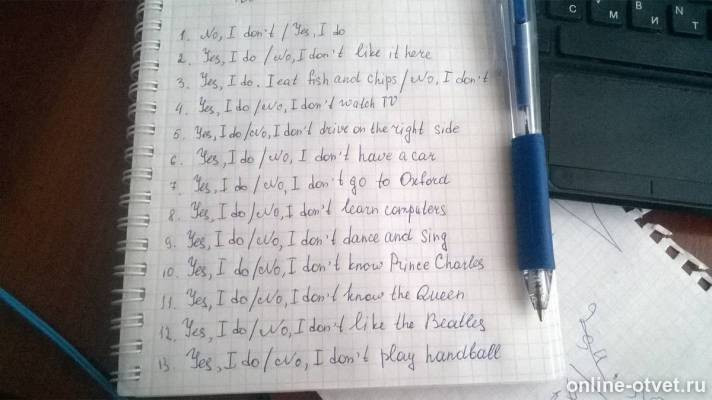 1. No, I don't / Yes, I do
2. Yes, I do / No, I don't like it here
3. Yes, I do. I eat fish and chips / No, I don't
4. Yes, I do / No, I don't watch TV
5. Yes, I do / No, I don't drive on the right side
6. Yes, I do / No, I don't have a car
7. Yes, I do / No, I don't go to Oxford
8. Yes, I do / No, I don't learn computers
9. Yes, I do / No, I don't dance and sing
10. Yes, I do / No, I don't know Prince Charles
11. Yes, I do / No, I don't know the Queen
12. Yes, I do / No, I don't like the Beatles
13. Yes, I do / No, I don't play handball
С М И Т
В N
online-otvet.ru